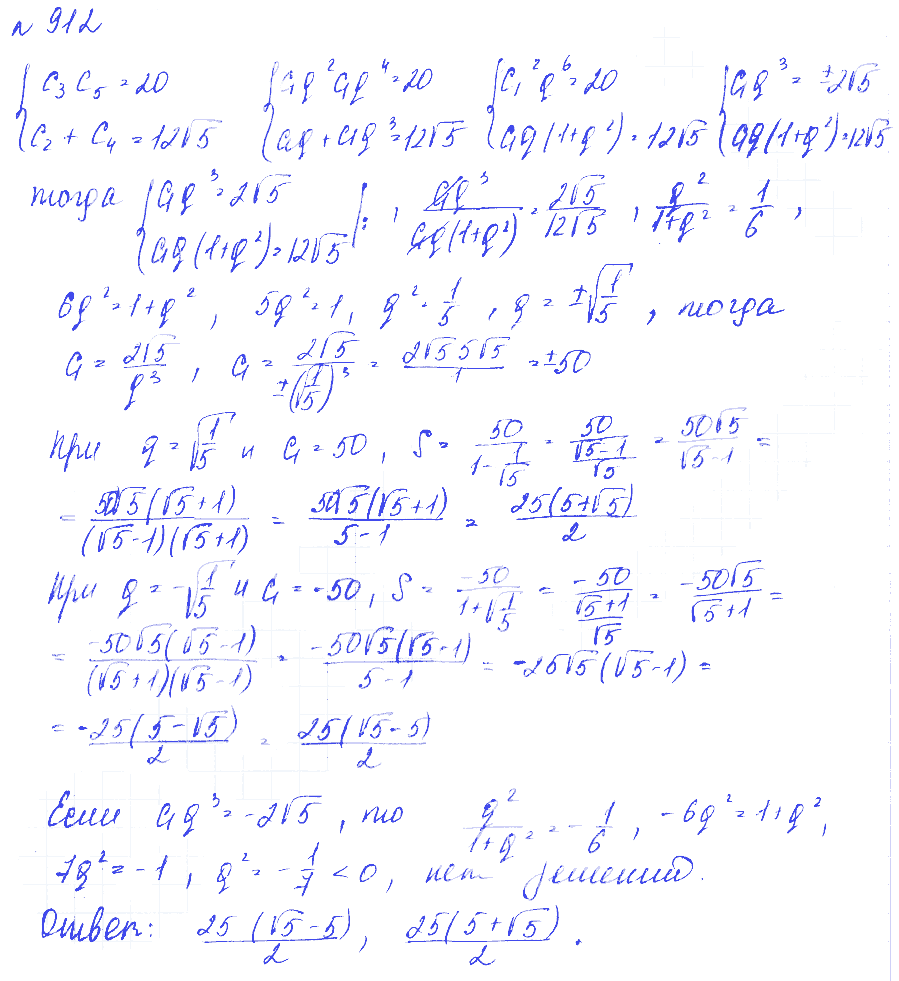 № 912
{ C₃ C₅ = 20 { C₁q² C₁q⁴ = 20 { C₁²q⁶ = 20 { C₁q³ = ±2√5
{ C₂ + C₄ = 12√5 { C₁q + C₁q³ = 12√5 { C₁q(1+q²) = 12√5 { C₁q(1+q²) = 12√5
тогда { C₁q³ = 2√5 { C₁q(1+q²) = 12√5 |: , C₁q³/(C₁q(1+q²)) = 2√5/12√5 , q²/(1+q²) = 1/6 ,
6q² = 1+q² , 5q² = 1, q² = 1/5 , q = ±√(1/5) , тогда
C₁ = 2√5/q³ , C₁ = 2√5/(±(1/√5)³) = 2√5 5√5/1 = ±50
При q = √(1/5) и C₁ = 50 , S = 50/(1 - 1/√5) = 50/((√5-1)/√5) = 50√5/(√5-1) =
= 50√5(√5+1)/((√5-1)(√5+1)) = 50√5(√5+1)/(5-1) = 25(5+√5)/2
При q = -√(1/5) и C₁ = -50 , S = -50/(1+√(1/5)) = -50/((√5+1)/√5) = -50√5/(√5+1) =
= -50√5(√5-1)/((√5+1)(√5-1)) = -50√5(√5-1)/(5-1) = -25√5(√5-1) =
= -25(5-√5)/2 = 25(√5-5)/2
Если C₁q³ = -2√5 , то q²/(1+q²) = -1/6 , -6q² = 1+q² ,
7q² = -1 , q² = -1/7 < 0 , нет решений.
Ответ: 25(√5-5)/2 , 25(5+√5)/2 .